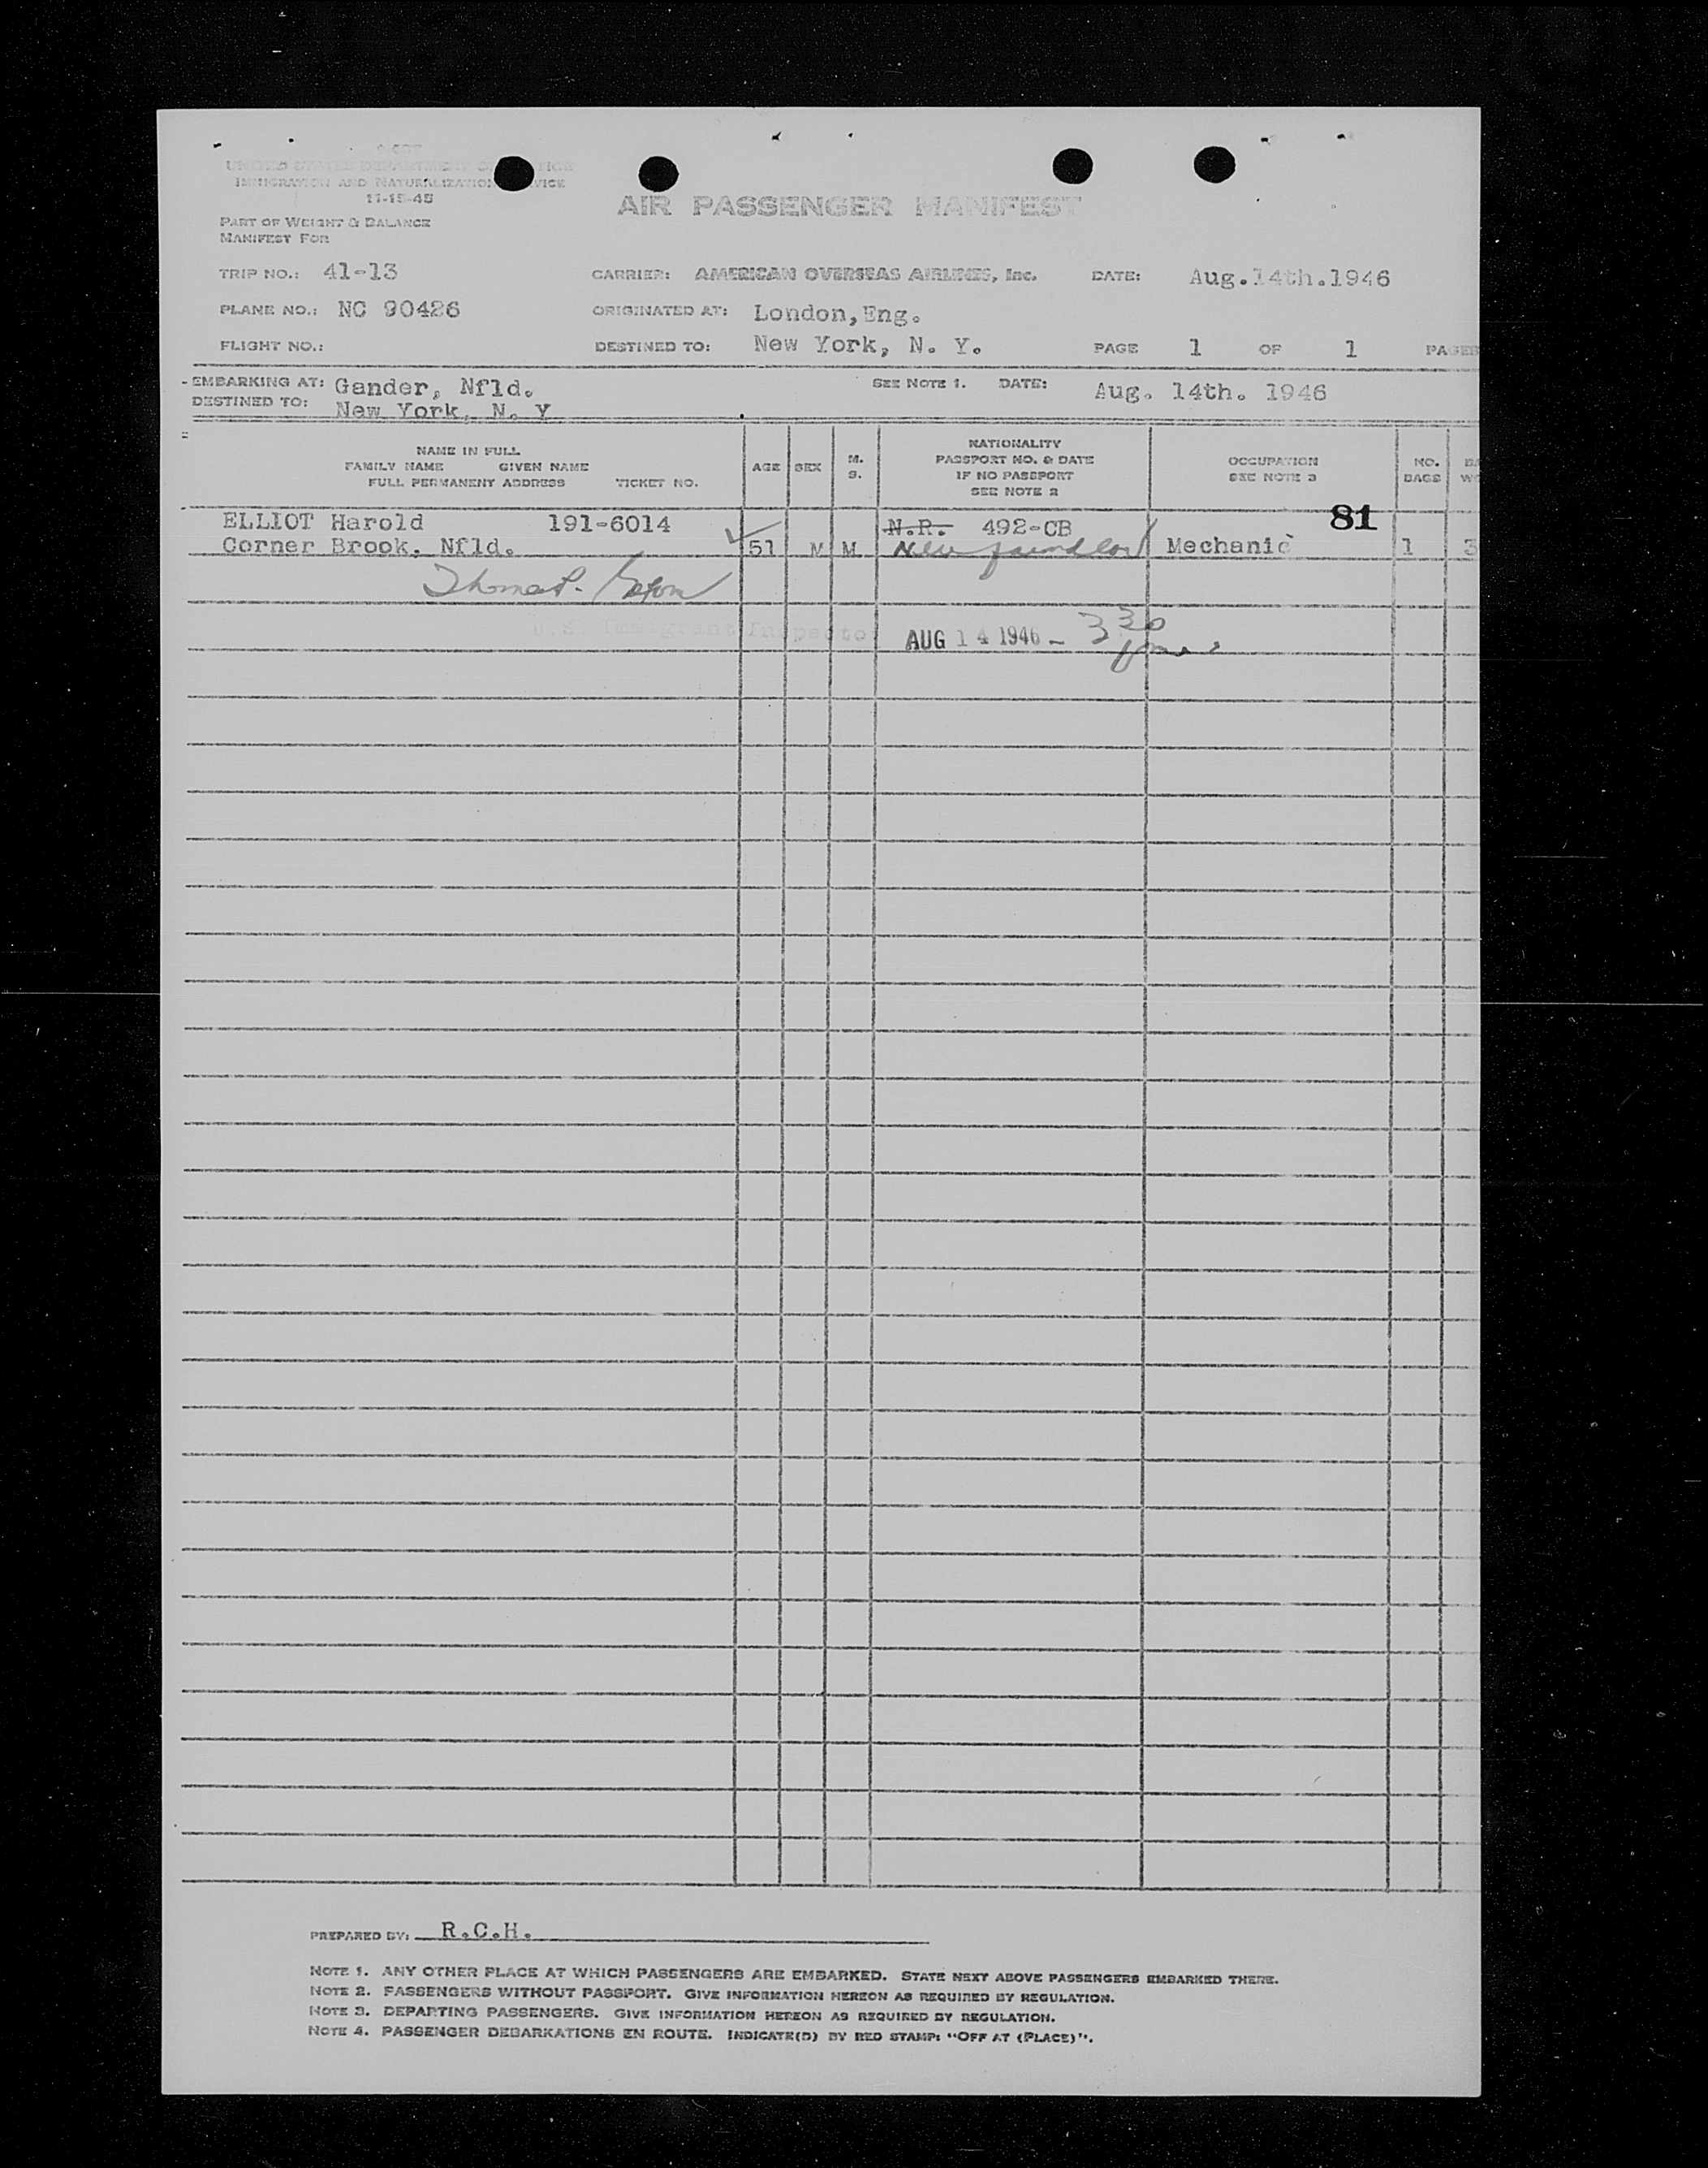 UNITED STATES DEPARTMENT OF JUSTICE
IMMIGRATION AND NATURALIZATION SERVICE
11-15-45
PART OF WEIGHT & BALANCE
MANIFEST FOR
AIR PASSENGER MANIFEST
TRIP NO.: 41-13 CARRIER: AMERICAN OVERSEAS AIRLINES, Inc. DATE: Aug.14th.1946
PLANE NO.: NC 90426 ORIGINATED AT: London,Eng.
FLIGHT NO.: DESTINED TO: New York, N. Y. PAGE 1 OF 1 PAGES
EMBARKING AT: Gander, Nfld. SEE NOTE 1. DATE: Aug. 14th. 1946
DESTINED TO: New York, N. Y
NAME IN FULL
FAMILY NAME GIVEN NAME
FULL PERMANENT ADDRESS TICKET NO.
AGE
SEX
M.
S.
NATIONALITY
PASSPORT NO. & DATE
IF NO PASSPORT
SEE NOTE 2
OCCUPATION
SEE NOTE 3
NO.
BAGS
ELLIOT Harold 191-6014 N.R. 492-CB 81
Corner Brook, Nfld. 51 M M Newfoundland Mechanic 1 3
U.S. Immigrant Inspector
AUG 14 1946 - 330
PREPARED BY: R.C.H.
NOTE 1. ANY OTHER PLACE AT WHICH PASSENGERS ARE EMBARKED. STATE NEXT ABOVE PASSENGERS EMBARKED THERE.
NOTE 2. PASSENGERS WITHOUT PASSPORT. GIVE INFORMATION HEREON AS REQUIRED BY REGULATION.
NOTE 3. DEPARTING PASSENGERS. GIVE INFORMATION HEREON AS REQUIRED BY REGULATION.
NOTE 4. PASSENGER DEBARKATIONS EN ROUTE. INDICATE(D) BY RED STAMP: "OFF AT (PLACE)".